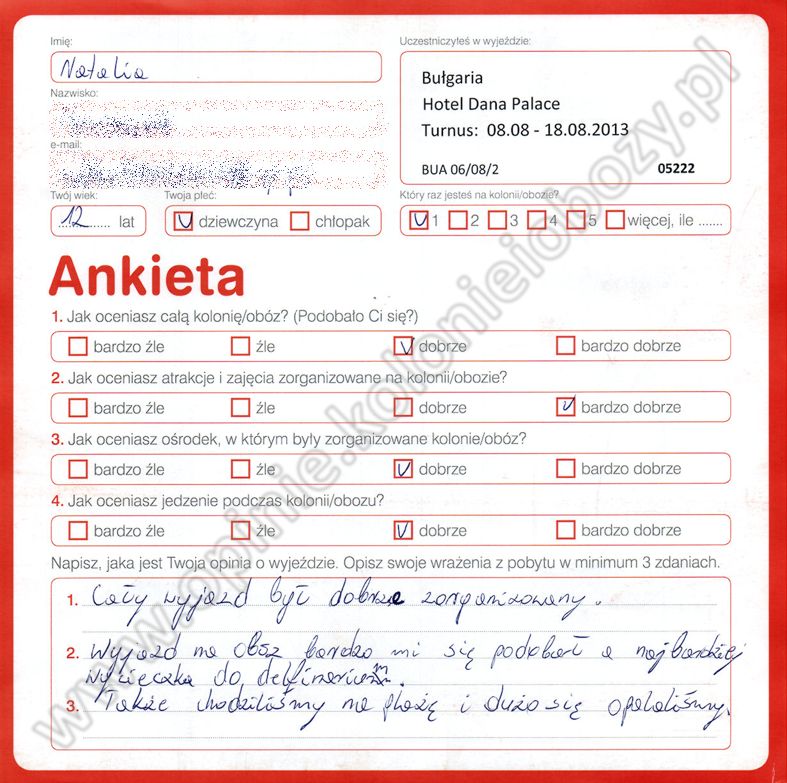 Imię:
Natalia
Nazwisko:
e-mail:
Uczestniczyłeś w wyjeździe:
Bułgaria
Hotel Dana Palace
Turnus: 08.08 - 18.08.2013
BUA 06/08/2 05222
Twój wiek: Twoja płeć: Który raz jesteś na kolonii/obozie?
12 lat dziewczyna chłopak 1 2 3 4 5 więcej, ile .......
Ankieta
1. Jak oceniasz całą kolonię/obóz? (Podobało Ci się?)
bardzo źle źle dobrze bardzo dobrze
2. Jak oceniasz atrakcje i zajęcia zorganizowane na kolonii/obozie?
bardzo źle źle dobrze bardzo dobrze
3. Jak oceniasz ośrodek, w którym były zorganizowane kolonie/obóz?
bardzo źle źle dobrze bardzo dobrze
4. Jak oceniasz jedzenie podczas kolonii/obozu?
bardzo źle źle dobrze bardzo dobrze
Napisz, jaka jest Twoja opinia o wyjeździe. Opisz swoje wrażenia z pobytu w minimum 3 zdaniach.
1. Cały wyjazd był dobrze zorganizowany.
2. Wyjazd na obóz bardzo mi się podobał a najbardziej
wycieczka do delfinarium.
3. Także chodziliśmy na plażę i dużo się opalaliśmy.
www.opinie.kolonieiobozy.pl